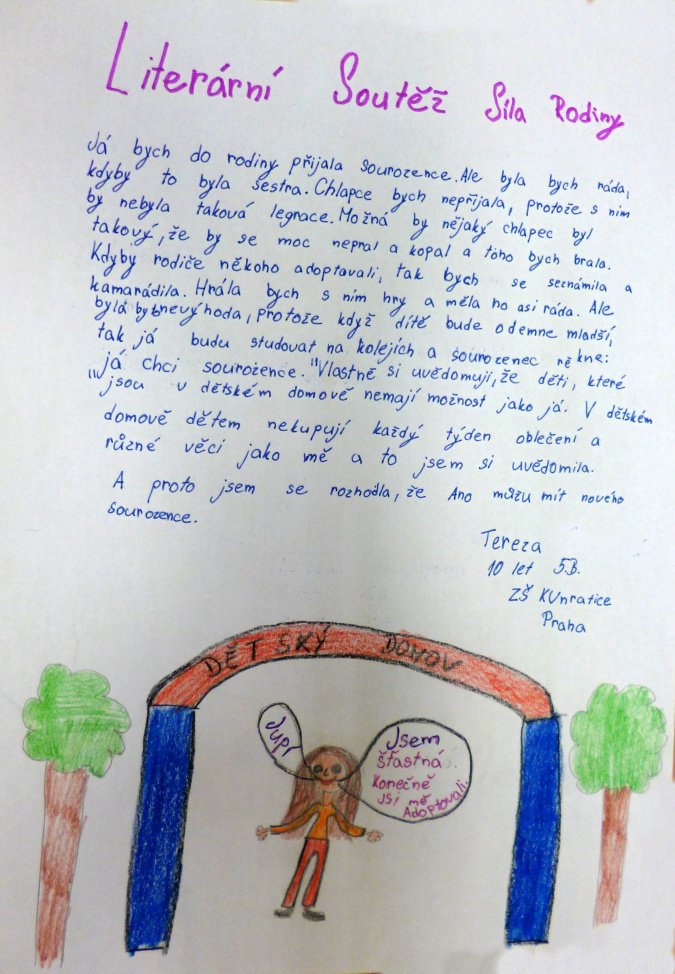 Literární Soutěž Síla Rodiny
Já bych do rodiny přijala sourozence. Ale byla bych ráda,
kdyby to byla sestra. Chlapce bych nepřijala, protože s ním
by nebyla taková legrace. Možná by nějaký chlapec byl
takový, že by se moc nepral a kopal a toho bych brala.
Kdyby rodiče někoho adoptavali, tak bych se seznámila a
kamarádila. Hrála bych s ním hry a měla ho asi ráda. Ale
byla by nevýhoda, protože když dítě bude odemne mladší,
tak já budu studovat na kolejích a sourozenec řekne:
"já chci sourozence." Vlastně si uvědomuji, že děti, které
jsou v dětském domově nemají možnost jako já. V dětském
domově dětem nekupují každý týden oblečení a
různé věci jako mě a to jsem si uvědomila.
A proto jsem se rozhodla, že Ano můžu mít nového
sourozence.
Tereza
10 let 5.B.
ZŠ KUnratice
Praha
DĚTSKÝ DOMOV
Jupí
Jsem
šťastná.
Konečně
jsi mě
Adoptovali.